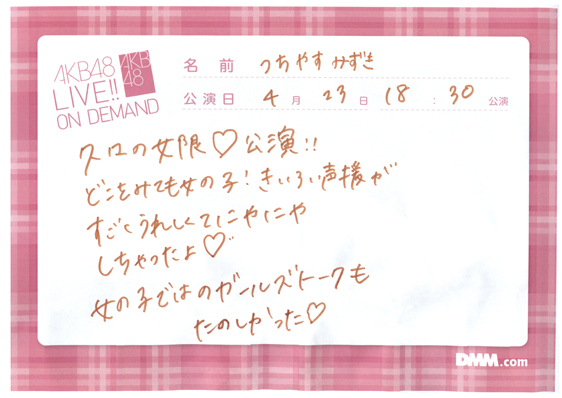 AKB48
LIVE!!
ON DEMAND
AKB
48
名前 つちやす みずき
公演日 4月 23日 18:30 公演
久々の女限♡公演!!
どこをみても女の子!きいろい声援が
すごくうれしくてにやにや
しちゃったよ♡
女の子ではのガールズトークも
たのしかった♡
DMM.com